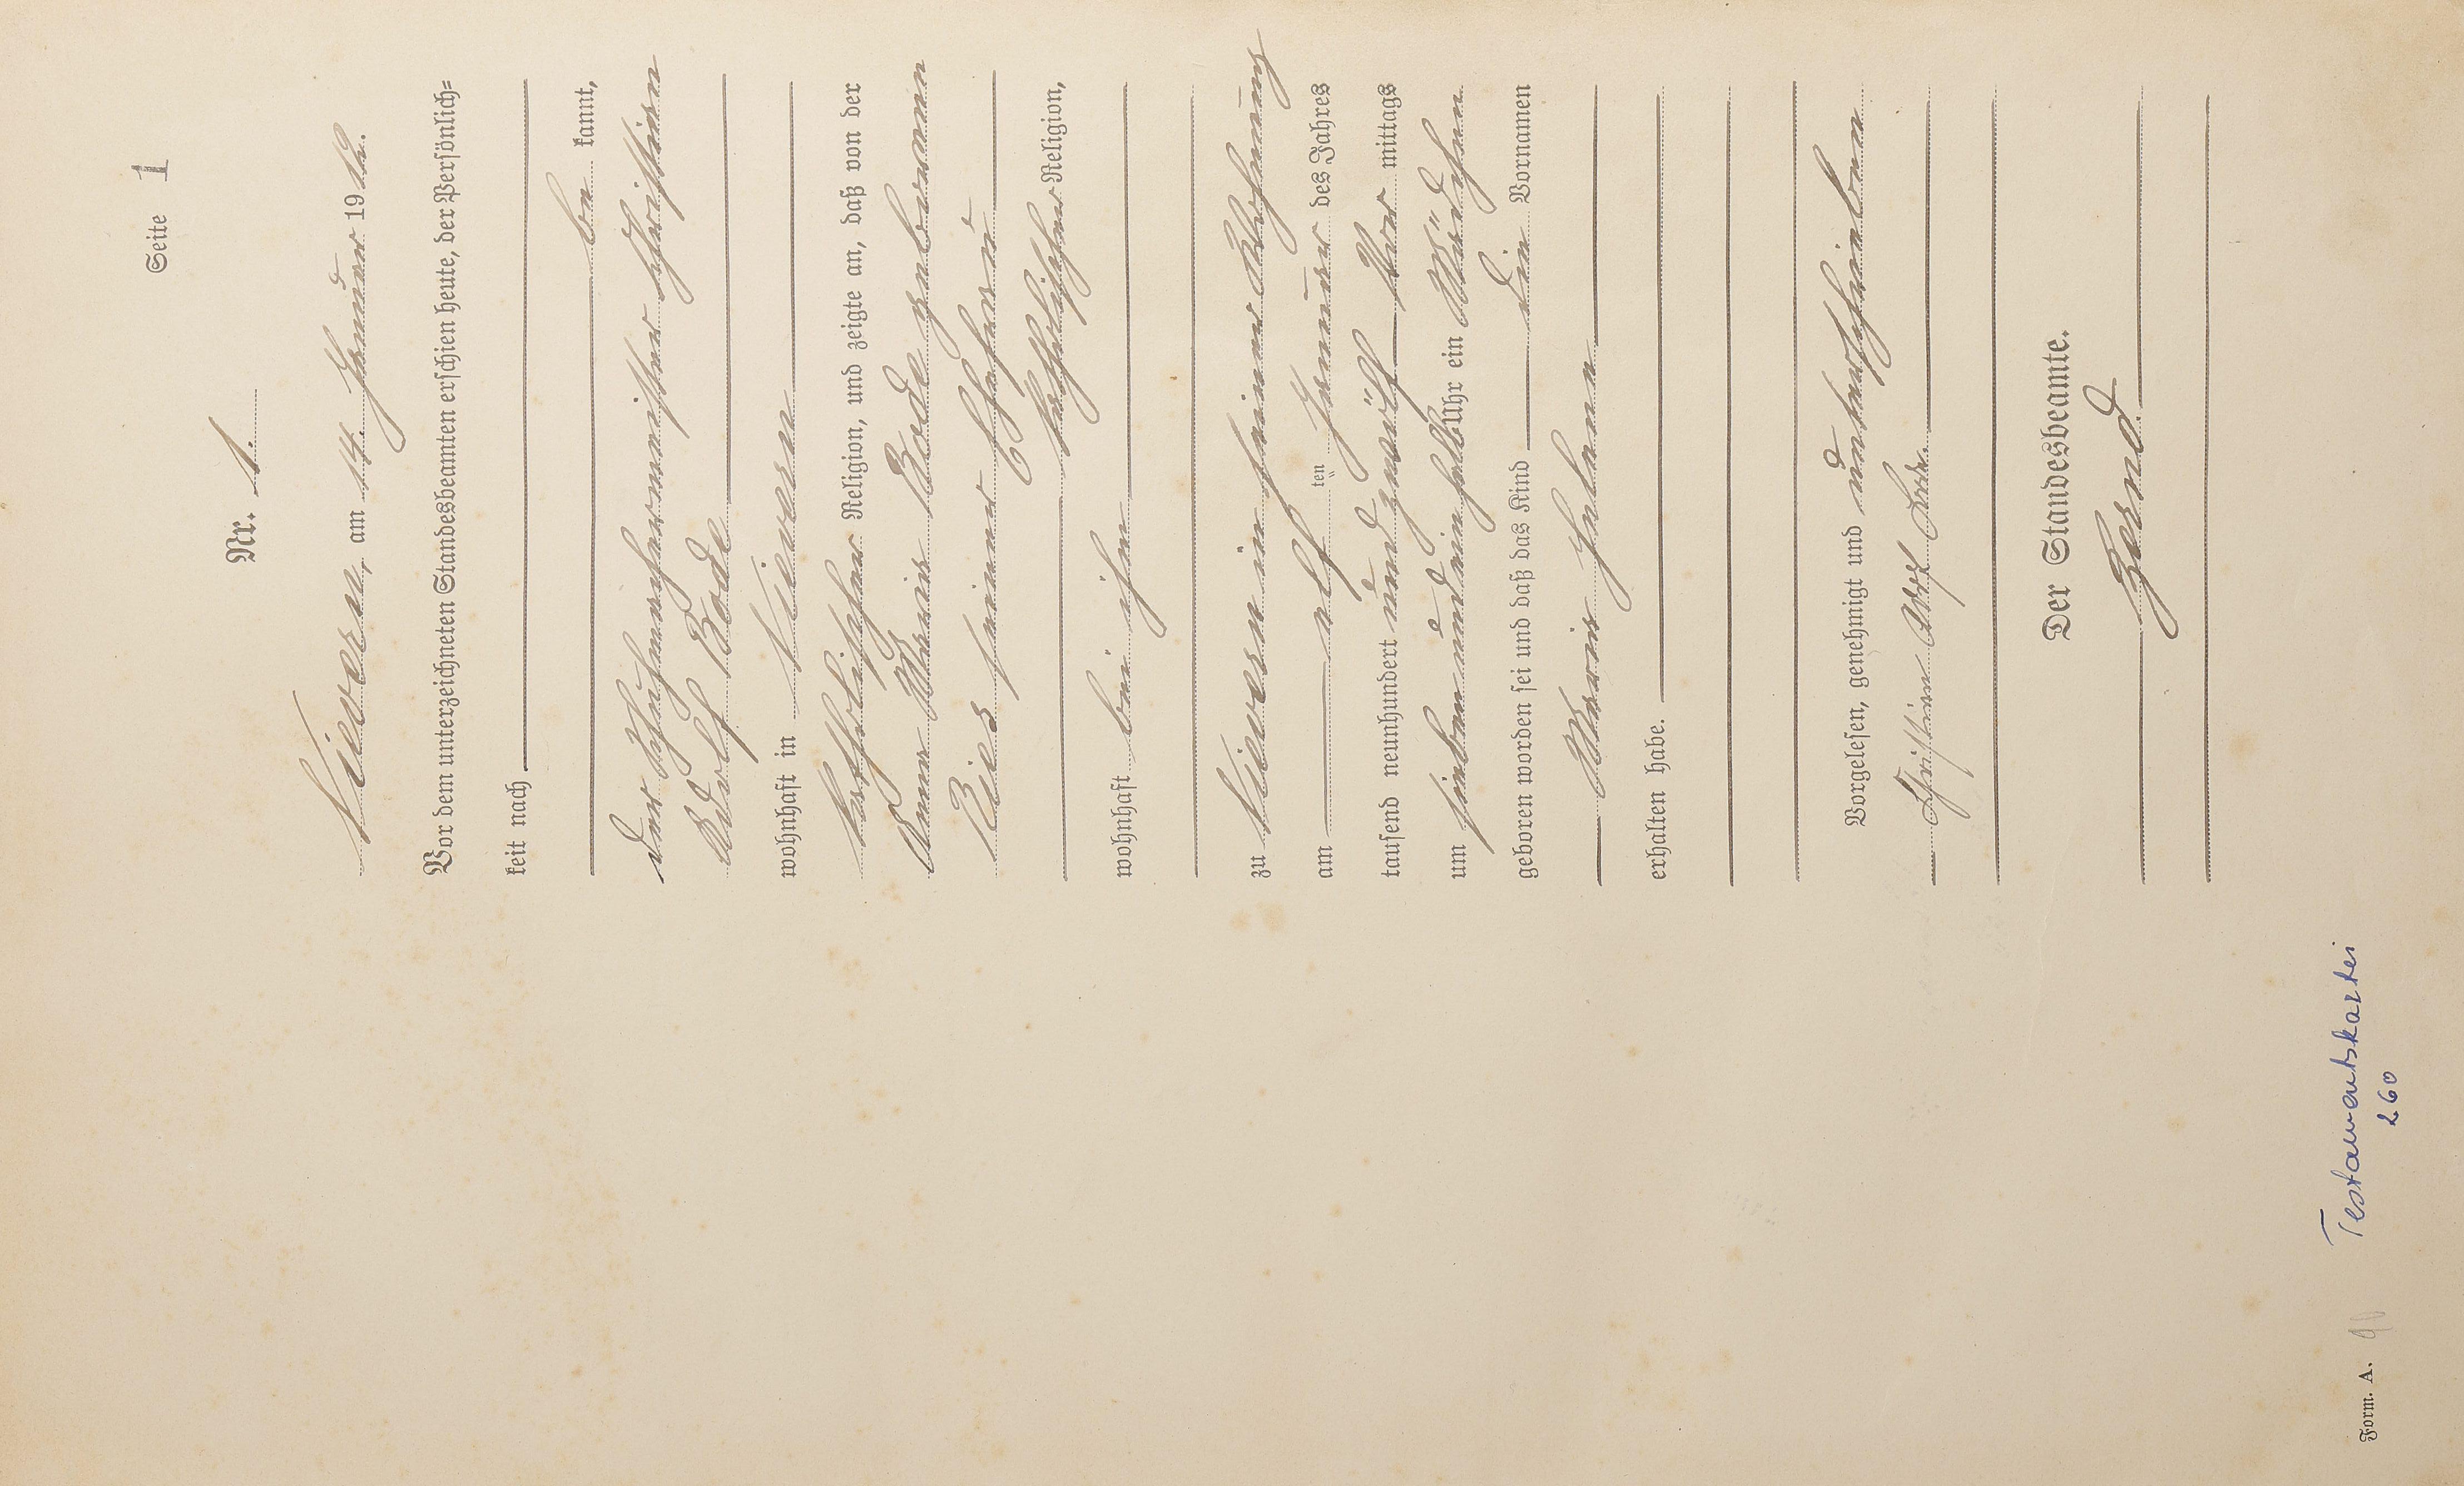 Seite 1
Nr. 1.
Nievern, am 14. Januar 1912.
Vor dem unterzeichneten Standesbeamten erschien heute, der Persönlich-
keit nach
be kannt,
der Schuhmachermeister Christian
Adolf Bode
wohnhaft in Nievern
katholischer Religion, und zeigte an, daß von der
Anna Maria Bode geborenen
Ries seiner Ehefrau
katholischer Religion,
wohnhaft bei ihm
zu Nievern in seiner Wohnung
am elf ten Januar des Jahres
tausend neunhundert und zwölf Vor mittags
um sieben und ein halb Uhr ein Mädchen
geboren worden sei und daß das Kind die Vornamen
Maria Helena
erhalten habe.
Vorgelesen, genehmigt und unterschrieben
Christian Adolf Bode.
Der Standesbeamte.
Testamentskartei
260
Form. A.